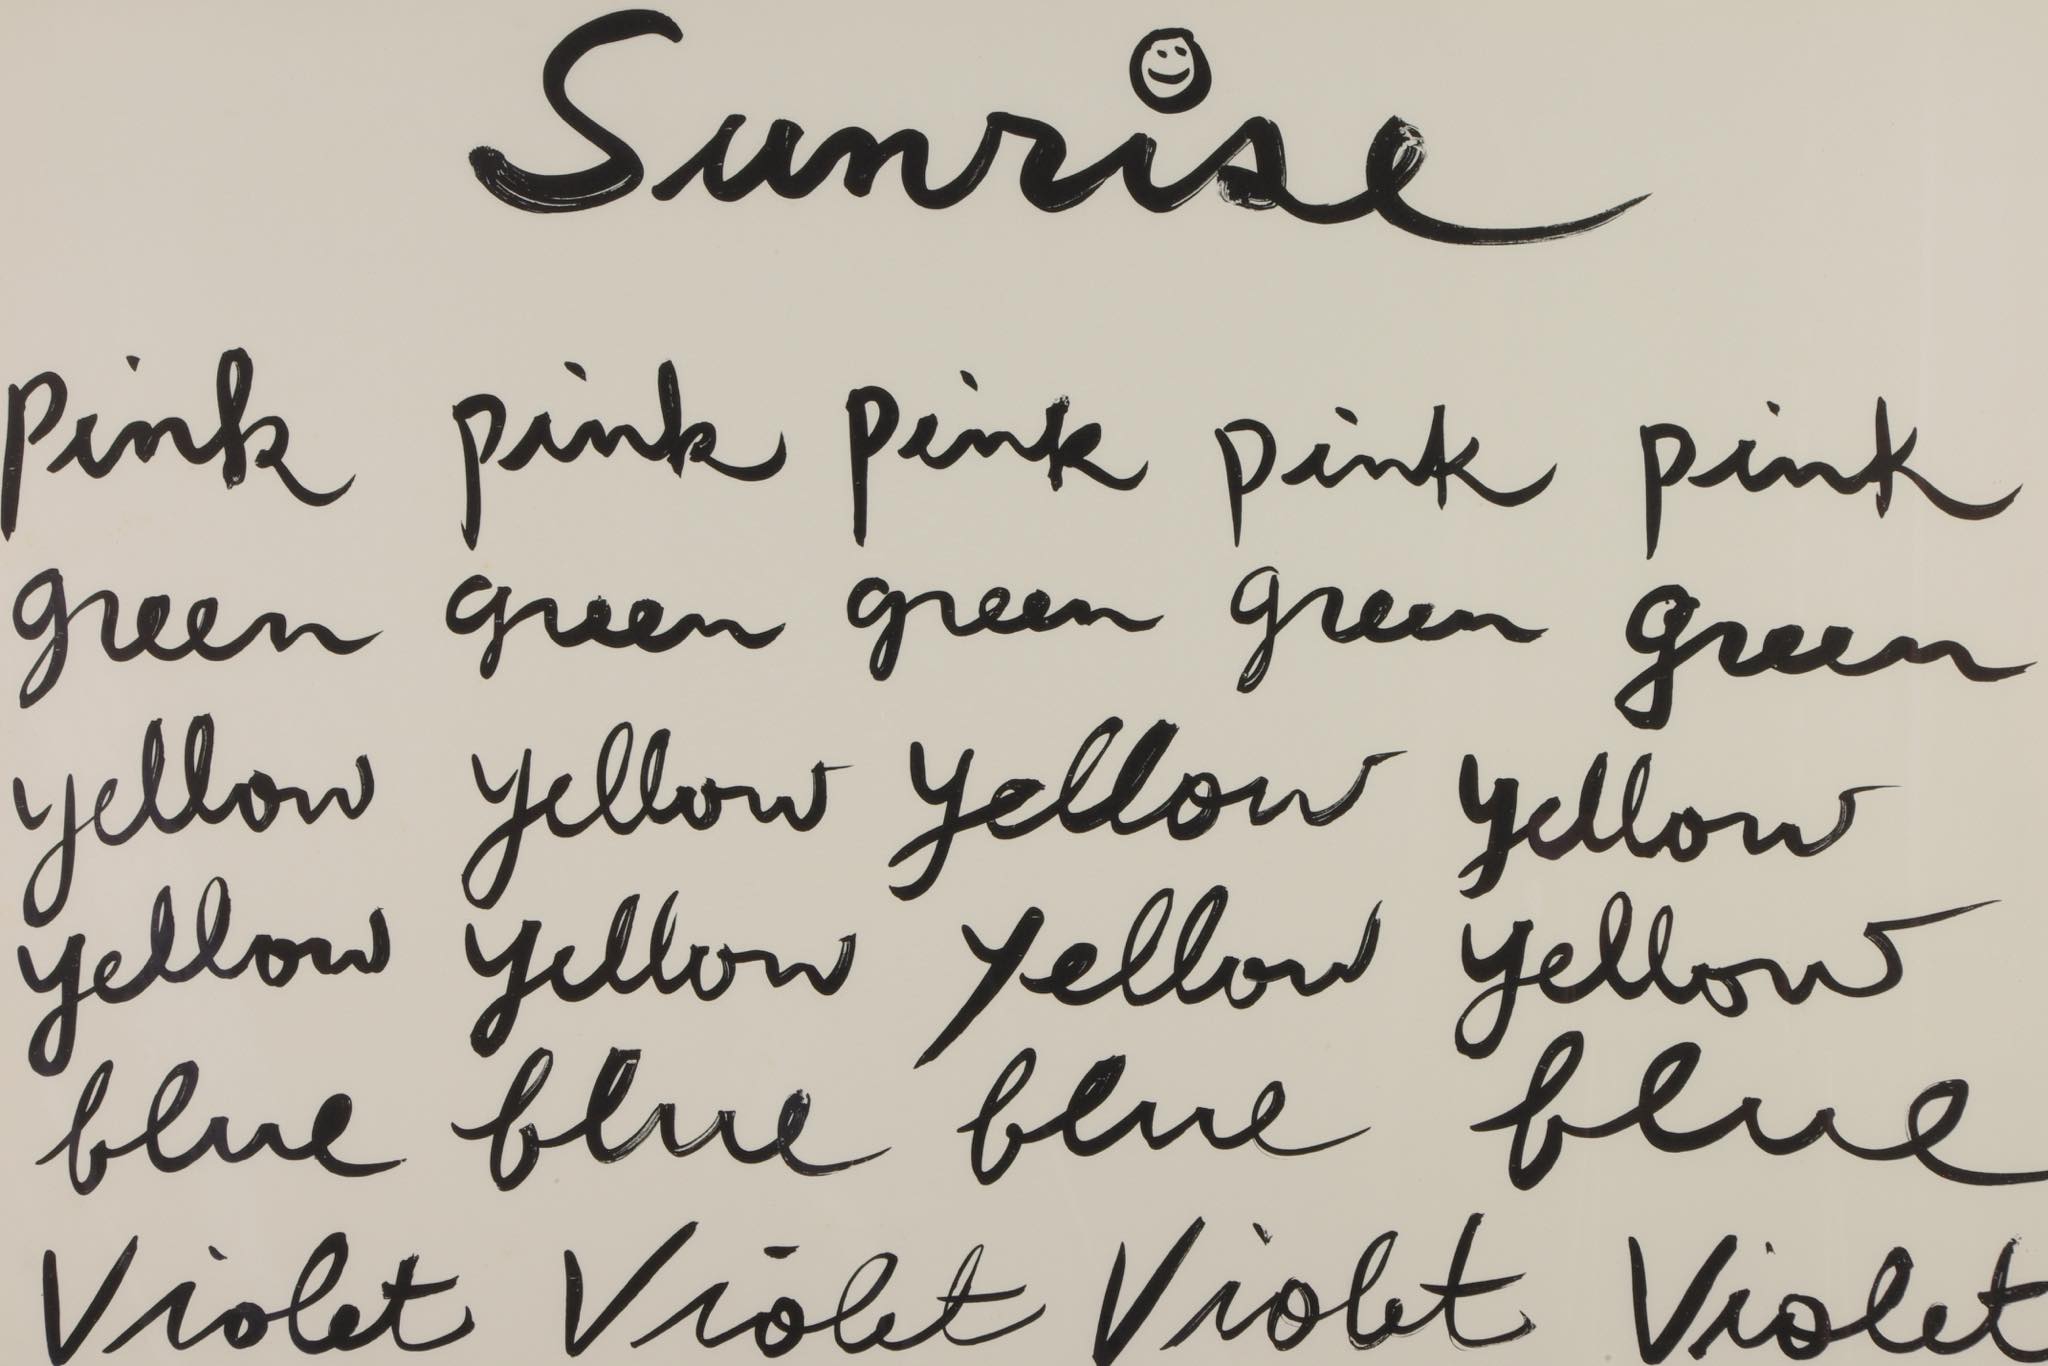 Sunrise
pink pink pink pink pink
green green green green green
yellow yellow yellow yellow
yellow yellow yellow yellow
blue blue blue blue
Violet Violet Violet Violet